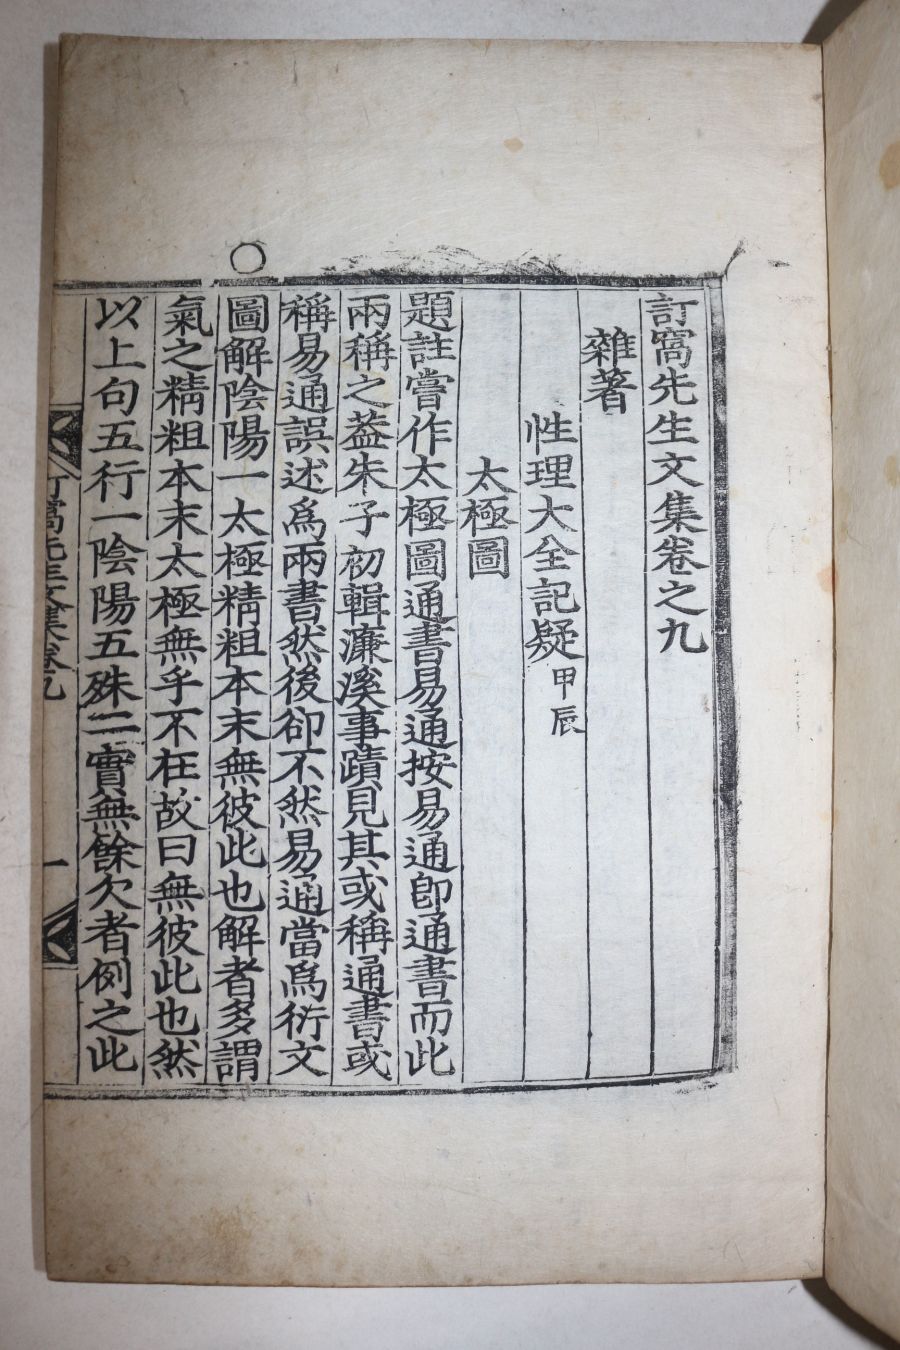 訂窩先生文集卷之九
雜著
性理大全記疑甲辰
太極圖
題註嘗作太極圖通書易通按易通卽通書而此
兩稱之葢朱子初輯濂溪事蹟見其或稱通書或
稱易通誤述爲兩書然後卻不然易通當爲衍文
圖解陰陽一太極精粗本末無彼此也解者多謂
氣之精粗本末太極無乎不在故曰無彼此也然
以上句五行一陰陽五殊二實無餘欠者例之此
訂窩先生文集卷九
一